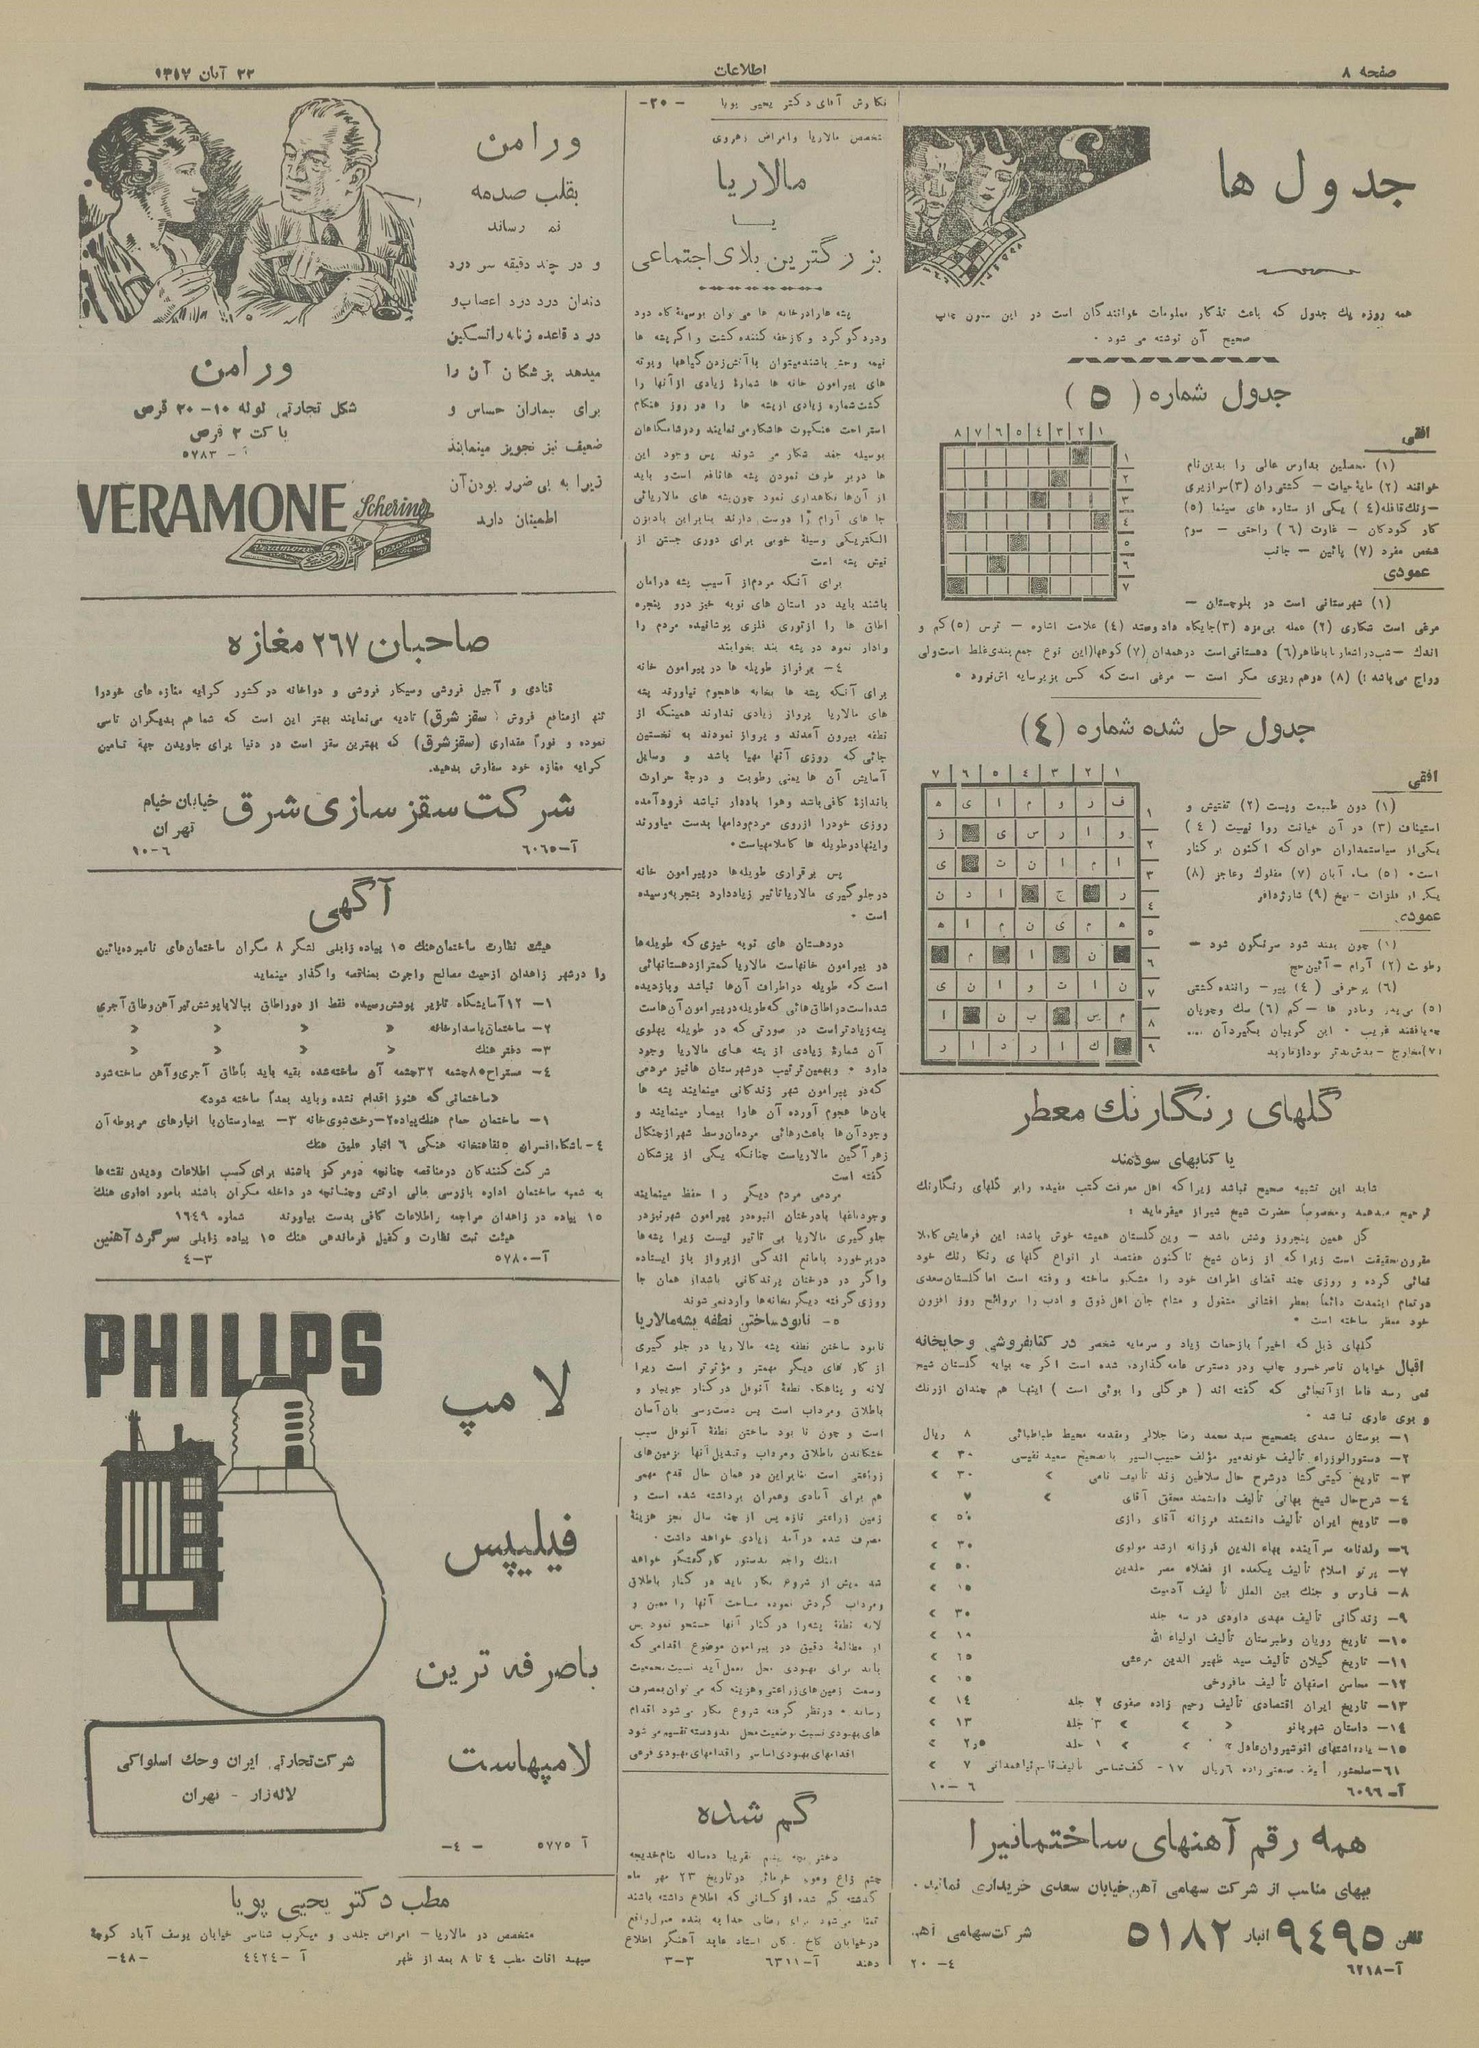 صفحه ۸
اطلاعات
۲۲ آبان ۱۳۱۷
جدول ها
همه روزه يك جدول كه باعث تذكار معلومات خوانندگان است در اين ستون چاپ
صحيح آن نوشته می شود ۰
جدول شماره ( ۵ )
۱ ۲ ۳ ۴ ۵ ۶ ۷ ۸
۱
۲
۳
۴
۵
۶
۷
افقی
(۱) محصلين مدارس عالی را بدين نام
خوانند (۲) مايۀ حيات – كشتی ران (۳) سرازيری
– زنك قافله (۴) يكی از ستاره های سينما (۵)
كار كودكان – غارت (۶) راحتی – سوم
شخص مفرد (۷) پائين – جانب
عمودی
(۱) شهرستانی است در بلوچستان –
مرغی است شكاری (۲) عمله بی مزد (۳) جايگاه دادوستد (۴) علامت اشاره – ترس (۵) كم و
اندك – شب در اشعار باباطاهر (۶) دهستانی است در همدان (۷) كوهها (اين نوع جمع بندی غلط است ولی
رواج می باشد :) (۸) درهم ريزی مكر است – مرغی است كه كس بزير سايه اش نرود ۰
جدول حل شده شماره (۴)
۱ ۲ ۳ ۴ ۵ ۶ ۷
ف ر و م ا ی ه
و ا ر س ی ز
ا م ا ن ت ی
ر ج ا د ن
ه م ی ن م ا ه
ن ا م
ن ا ت و ا ن ی
م س ب ن ا
ك ا ر د ا ر
افقی
(۱) دون طبيعت و پست (۲) تفتيش و
استيناف (۳) در آن خيانت روا نيست (۴)
يكی از سياستمداران جوان كه اكنون بر كنار
است ۰ (۵) ماه آبان (۷) مفلوك و عاجز (۸)
يكی از فلزات – بيخ (۹) شارژدافر
عمودی
(۱) چون بلند شود سرنگون شود –
رطوبت (۲) آرام – آئين حج
(۶) پرحرفی (۴) پير – راننده كشتی
(۷) مخارج – بدش بدتر بود از مار بد
گلهای رنگارنك معطر
يا كتابهای سودمند
شايد اين تشبيه صحيح نباشد زيرا كه اهل معرفت كتب مفيده را بر گلهای رنگارنك
ترجيح ميدهند و مخصوصاً حضرت شيخ شيراز ميفرمايد :
گل همين پنجروز و شش باشد – وين گلستان هميشه خوش باشد : اين فرمايش كاملا
مقرون بحقيقت است زيرا كه از زمان شيخ تا كنون هفتصد بار انواع گلهای رنكا رنك خود
نمائی كرده و روزی چند فضای اطراف خود را مشكبو ساخته و رفته است اما گلستان سعدی
در تمام اينمدت دائماً بعطر افشانی مشغول و مشام جان اهل ذوق و ادب را بروائح روز افزون
خود معطر ساخته است ۰
گلهای ذيل كه اخيراً با زحمات زياد و سرمايه شخصی در كتابفروشی و چاپخانه
اقبال خيابان ناصرخسرو چاپ و در دسترس عامه گذارده شده است اگر چه بپايه گلستان شيخ
نمی رسد فاما از آنجائی كه گفته اند ( هر گلی را بوئی است ) اينها هم چندان از رنك
و بوی عاری نباشد ۰
۱– بوستان سعدی بتصحيح سيد محمد رضا جلالی و مقدمه محيط طباطبائی ۸ ريال
۲– دستورالوزراء تأليف خوندمير مؤلف حبيب السير با تصحيح سعيد نفيسی ۳۰ »
۳– تاريخ گيتی گشا در شرح حال سلاطين زند تأليف نامی » ۳۰ »
۴– شرح حال شيخ بهائی تأليف دانشمند محقق آقای » ۷
۵– تاريخ ايران تأليف دانشمند فرزانه آقای رازی ۵۰ »
۶– ولدنامه سرآينده بهاء الدين فرزانه ارشد مولوی ۳۰ »
۷– پرتو اسلام تأليف يكعده از فضلاء مصر جلدين ۵۰ »
۸– فارس و جنك بين الملل تأليف آدميت ۱۵ »
۹– زندگانی تأليف مهدی داودی در سه جلد ۳۰ »
۱۰– تاريخ رويان و طبرستان تأليف اولياء الله ۱۰ »
۱۱– تاريخ گيلان تأليف سيد ظهير الدين مرعشی ۱۵ »
۱۲– محاسن اصفهان تأليف مافروخی ۱۵ »
۱۳– تاريخ ايران اقتصادی تأليف رحيم زاده صفوی ۲ جلد ۱۴ »
۱۴– داستان شهربانو » » ۳ جلد ۱۳ »
۱۵– يادداشتهای انوشيروان عادل » » ۱ جلد ۲ر۵ »
۱۷– كف شناسی ۷ »
آ– ۶۰۹۶ ۶–۱۰
همه رقم آهنهای ساختمانيرا
ببهای مناسب از شركت سهامی آهن خيابان سعدی خريداری نمائيد ۰
تلفن ۹۴۹۵ انبار ۵۱۸۲ شركت سهامی آهن
آ– ۶۲۱۸ ۴– ۲۰
نگارش آقای دكتر يحيی پويا –۲۰–
متخصص مالاريا و امراض زهروی
مالاريا
يا
بزرگترين بلای اجتماعی
پشه ها را در خانه ها می توان بوسيلۀ گاه دود
و دود گوگرد و گاز خفه كننده كشت و اگر پشه ها
نيمه وحشی باشند ميتوان با آتش زدن گياهها و بوته
های پيرامون خانه ها شمارۀ زيادی از آنها را
كشت شماره زيادی از پشه ها را در روز هنگام
استراحت عنكبوت ها شكار می نمايند و در شامگاهان
بوسيله جغد شكار می شوند پس وجود اين
ها در بر طرف نمودن پشه ها نافع است و بايد
از آن ها نگاهداری نمود چون پشه های مالاريائی
جا های آرام را دوست دارند بنابراين بادبزن
الكتريكی وسيلۀ خوبی برای دوری جستن از
نيش پشه است
برای آنكه مردم از آسيب پشه در امان
باشند بايد در استان های نوبه خيز در و پنجره
اطاق ها را از توری فلزی پوشانيده مردم را
وادار نمود در پشه بند بخوابند
۴– برقراری طويله ها در پيرامون خانه
برای آنكه پشه ها بخانه ها هجوم نياورند پشه
های مالاريا پرواز زيادی ندارند همينكه از
نطفه بيرون آمدند و پرواز نمودند به نخستين
جائی كه روزی آنها مهيا باشد و وسايل
آسايش آن ها يعنی رطوبت و درجۀ حرارت
باندازۀ كافی باشد و هوا باددار نباشد فرود آمده
روزی خود را از روی مردم و دامها بدست مياورند
و اينها در طويله ها كاملا مهياست ۰
پس برقراری طويله ها در پيرامون خانه
در جلوگيری مالاريا تاثير زياد دارد بتجربه رسيده
است ۰
در دهستان های نوبه خيزی كه طويله ها
در پيرامون خانهاست مالاريا كمتر از دهستانهائی
است كه طويله در اطراف آن ها نباشد و بازديده
شده است در اطاق هائی كه طويله در پيرامون آن هاست
پشه زياد تر است در صورتی كه در طويله پهلوی
آن شمارۀ زيادی از پشه های مالاريا وجود
دارد ۰ و بهمين ترتيب در شهرستان ها نيز مردمی
كه در پيرامون شهر زندگانی مينمايند پشه ها
بآن ها هجوم آورده آن ها را بيمار مينمايند و
وجود آن ها باعث رهائی مردمان وسط شهر از چنگال
زهر آگين مالارياست چنانكه يكی از پزشكان
گفته است
مردمی مردم ديگر را حفظ مينمايند
وجود باغها با درختان انبوه در پيرامون شهر نيز در
جلوگيری مالاريا بی تاثير نيست زيرا پشه ها
در برخورد با مانع اندكی از پرواز باز ايستاده
و اگر در درختان پرندگانی باشد از همان جا
روزی گرفته ديگر بخانه ها وارد نمی شوند
۵– نابود ساختن نطفه پشه مالاريا
نابود ساختن نطفه پشه مالاريا در جلو گيری
از كار های ديگر مهمتر و مؤثرتر است زيرا
لانه و پناهگاه نطفۀ آنوفل در كنار جويبار و
باطلاق و مرداب است پس دست رسی بآن آسان
است و چون نا بود ساختن نطفۀ آنوفل سبب
خشكاندن باطلاق و مرداب و تبديل آنها بزمين های
زراعتی است بنابراين در همان حال قدم مهمی
هم برای آبادی و عمران برداشته شده است و
زمين زراعتی تازه پس از چند سال بجز هزينۀ
مصرف شده درآمد زيادی خواهد داشت ۰
اينك راجع بدستور كار گفتگو خواهد
شد پيش از شروع بكار بايد در كنار باطلاق
و مرداب گردش نموده مساحت آنها را معين و
لانه نطفۀ پشه را در كنار آنها جستجو نمود پس
از مطالعۀ دقيق در پيرامون موضوع اقدامی كه
بايد برای بهبودی محل بعمل آيد نسبت بجمعيت
وسعت زمين های زراعتی و هزينه كه می توان بمصرف
رسانه ۰ در نظر گرفته شروع بكار می شود اقدام
های بهبودی نسبت بوضعيت محل بدو دسته تقسيم می شود
اقدامهای بهبودی اساسی و اقدامهای بهبودی فرعی
گم شده
دختر بچه يتيم تقريبا ده ساله بنام خديجه
چشم زاغ و موی خرمائی در تاريخ ۲۳ مهر ماه
گذشته گم شده از كسانی كه اطلاع داشته باشند
تمنا می شود برای رضای خدا به بنده منزل واقع
در خيابان كاخ دكان استاد عابد آهنگر اطلاع
دهند آ– ۶۳۱۱ ۳–۳
ورامن
بقلب صدمه
نمی رساند
و در چند دقيقه سر درد
دندان درد درد اعصاب و
درد قاعده زنانه را تسكين
ميدهد پزشكان آن را
برای بيماران حساس و
ضعيف نيز تجويز مينمايند
زيرا به بی ضرر بودن آن
اطمينان دارند
ورامن
شكل تجارتی لوله ۱۰– ۲۰ قرص
پاكت ۲ قرص
آ– ۵۷۸۳
VERAMONE Schering
Veramone
صاحبان ۲۶۷ مغازه
قنادی و آجيل فروشی و سيگار فروشی و دواخانه در كشور كرايه مغازه های خود را
تنها از منافع فروش ( سقز شرق ) تاديه می نمايند بهتر اين است كه شما هم بديگران تاسی
نموده و فوراً مقداری (سقز شرق) كه بهترين سقز است در دنيا برای جاويدن جهة تامين
كرايه مغازه خود سفارش بدهيد.
شركت سقز سازی شرق خيابان خيام
تهران
آ–۶۰۶۵ ۶–۱۰
آگهی
هيئت نظارت ساختمان هنك ۱۵ پياده زابلی لشگر ۸ مكران ساختمان های نامبرده پائين
را در شهر زاهدان از حيث مصالح و اجرت بمناقصه واگذار مينمايد
۱– ۱۲ آسايشگاه تاوير پوشش رسيده فقط از دور اطاق ببالا با پوشش تير آهن و طاق آجری
۲– ساختمان پاسدارخانه » » » »
۳– دفتر هنك » » » »
۴– مستراح ۸۵ چشمه ۳۲ چشمه آن ساخته شده بقيه بايد با طاق آجری و آهن ساخته شود
«ساختمانی كه هنوز اقدام نشده و بايد بعداً ساخته شود»
۱– ساختمان حمام هنك پياده ۲– رخت شوی خانه ۳– بيمارستان با انبارهای مربوطه آن
۴– باشگاه افسران ۵ نقاهتخانه هنگی ۶ انبار عليق هنك
شركت كنندگان در مناقصه چنانچه در مركز باشند برای كسب اطلاعات و ديدن نقشه ها
به شعبه ساختمان اداره بازرسی مالی ارتش و چنانچه در داخله مكران باشند بامور اداری هنك
۱۵ پياده در زاهدان مراجعه و اطلاعات كافی بدست بياورند شماره ۱۶۴۹
هيئت ثبت نظارت و كفيل فرماندهی هنك ۱۵ پياده زابلی سرگرد آهنين
آ–۵۷۸۰ ۳–۴
PHILIPS
لامپ
فيليپس
باصرفه ترين
لامپهاست
شركت تجارتی ايران و چك اسلواكی
لاله زار – تهران
آ ۵۷۷۵ –۴–
مطب دكتر يحيی پويا
متخصص در مالاريا– امراض جلدی و ميكرب شناسی خيابان يوسف آباد كوچۀ
سپهبد اوقات مطب ۴ تا ۸ بعد از ظهر آ –۴۴۲۴ –۴۸–